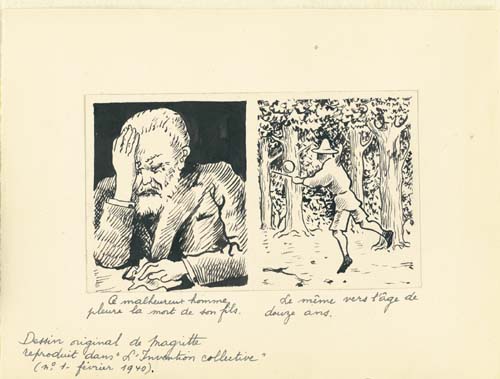 Ce malheureux homme
pleure la mort de son fils.
Le même vers l'âge de
douze ans.
Dessin original de Magritte
reproduit dans "L'Invention collective"
(n° 1 - février 1940).